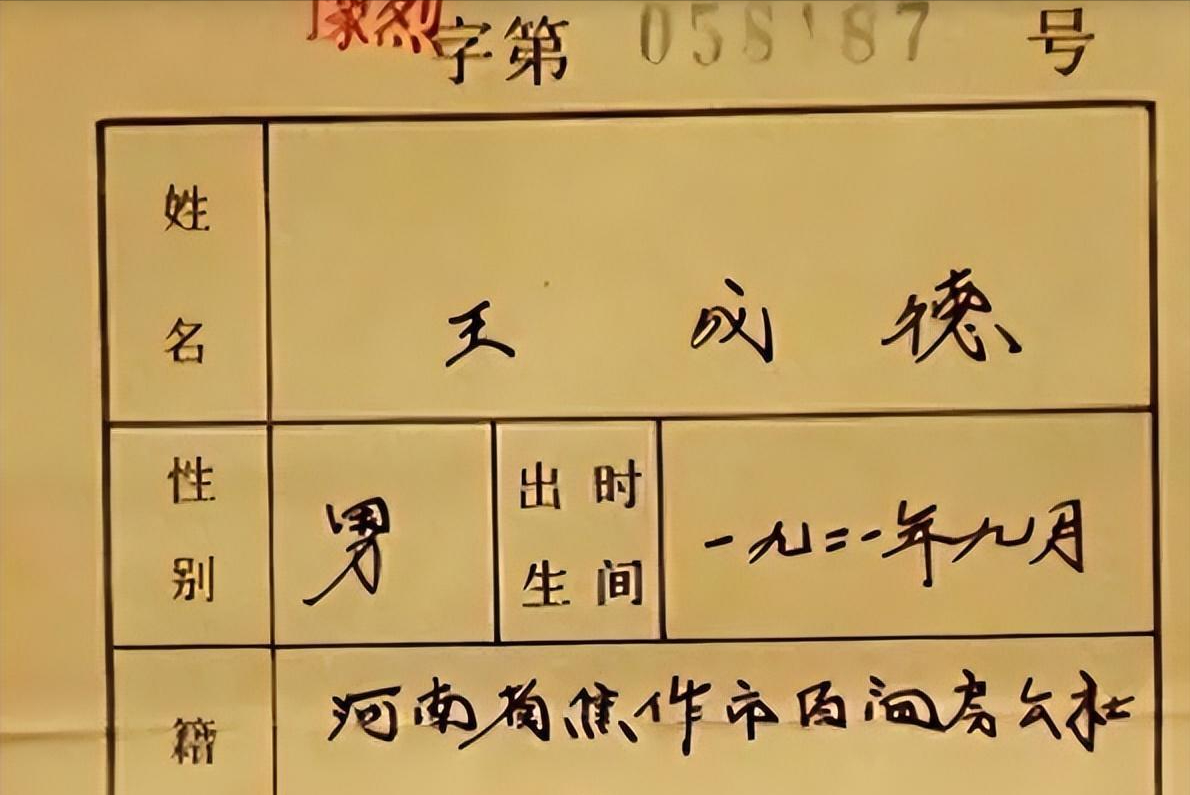 字第 058187 号
姓名 王成德
性别 男 出生时间 一九二一年九月
籍 河南省焦作市百间房公社